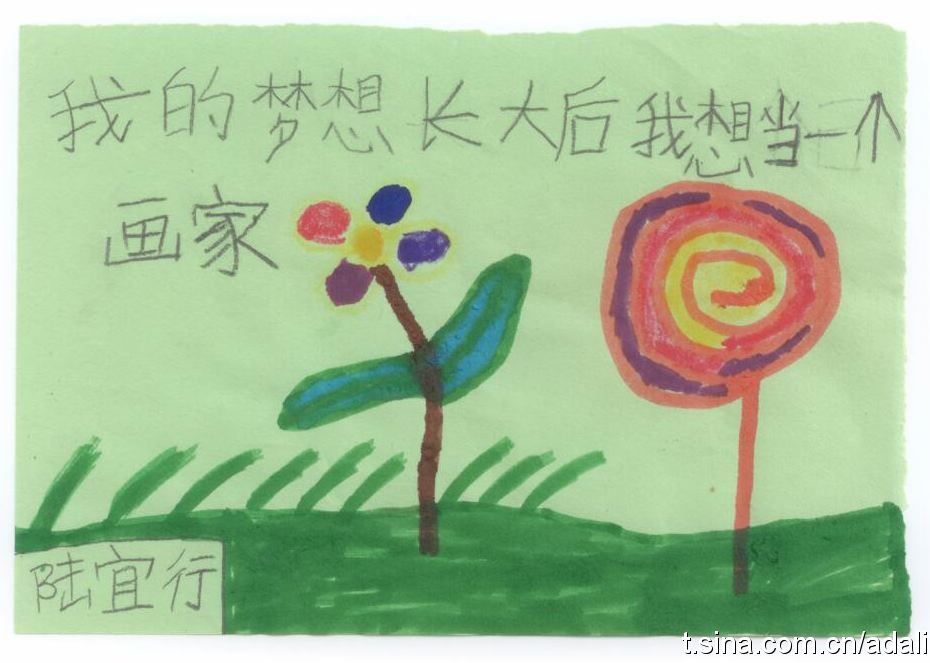 我的梦想长大后我想当一个
画家
陆宜行
t.sina.com.cn/adali